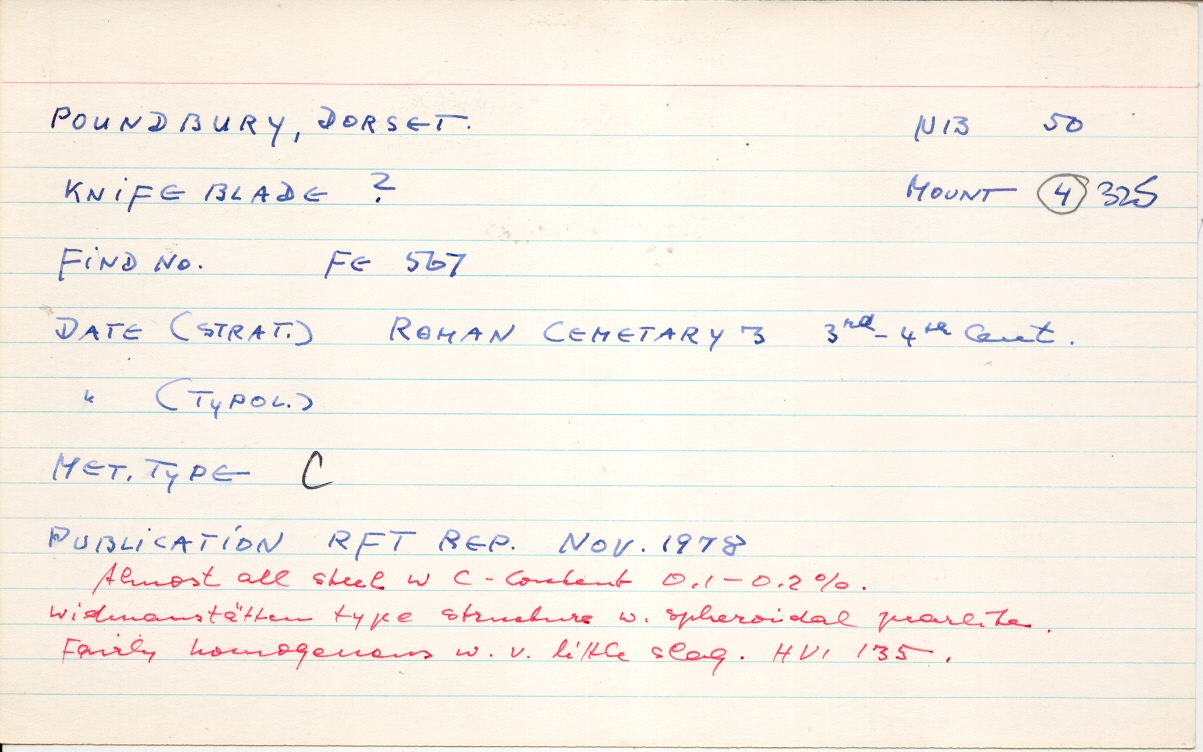 POUNDBURY, DORSET. N13 50
KNIFE BLADE ? MOUNT 4 325
FIND No. FE 567
DATE (STRAT.) ROMAN CEMETARY 3 3rd - 4th Cent.
" (TYPOL.)
MET. TYPE C
PUBLICATION RFT REP. NOV. 1978
Almost all steel w C-Content 0.1-0.2%.
Widmanstätten type structure w. spheroidal pearlite.
Fairly homogenous w. v. little slag. HV1 135.